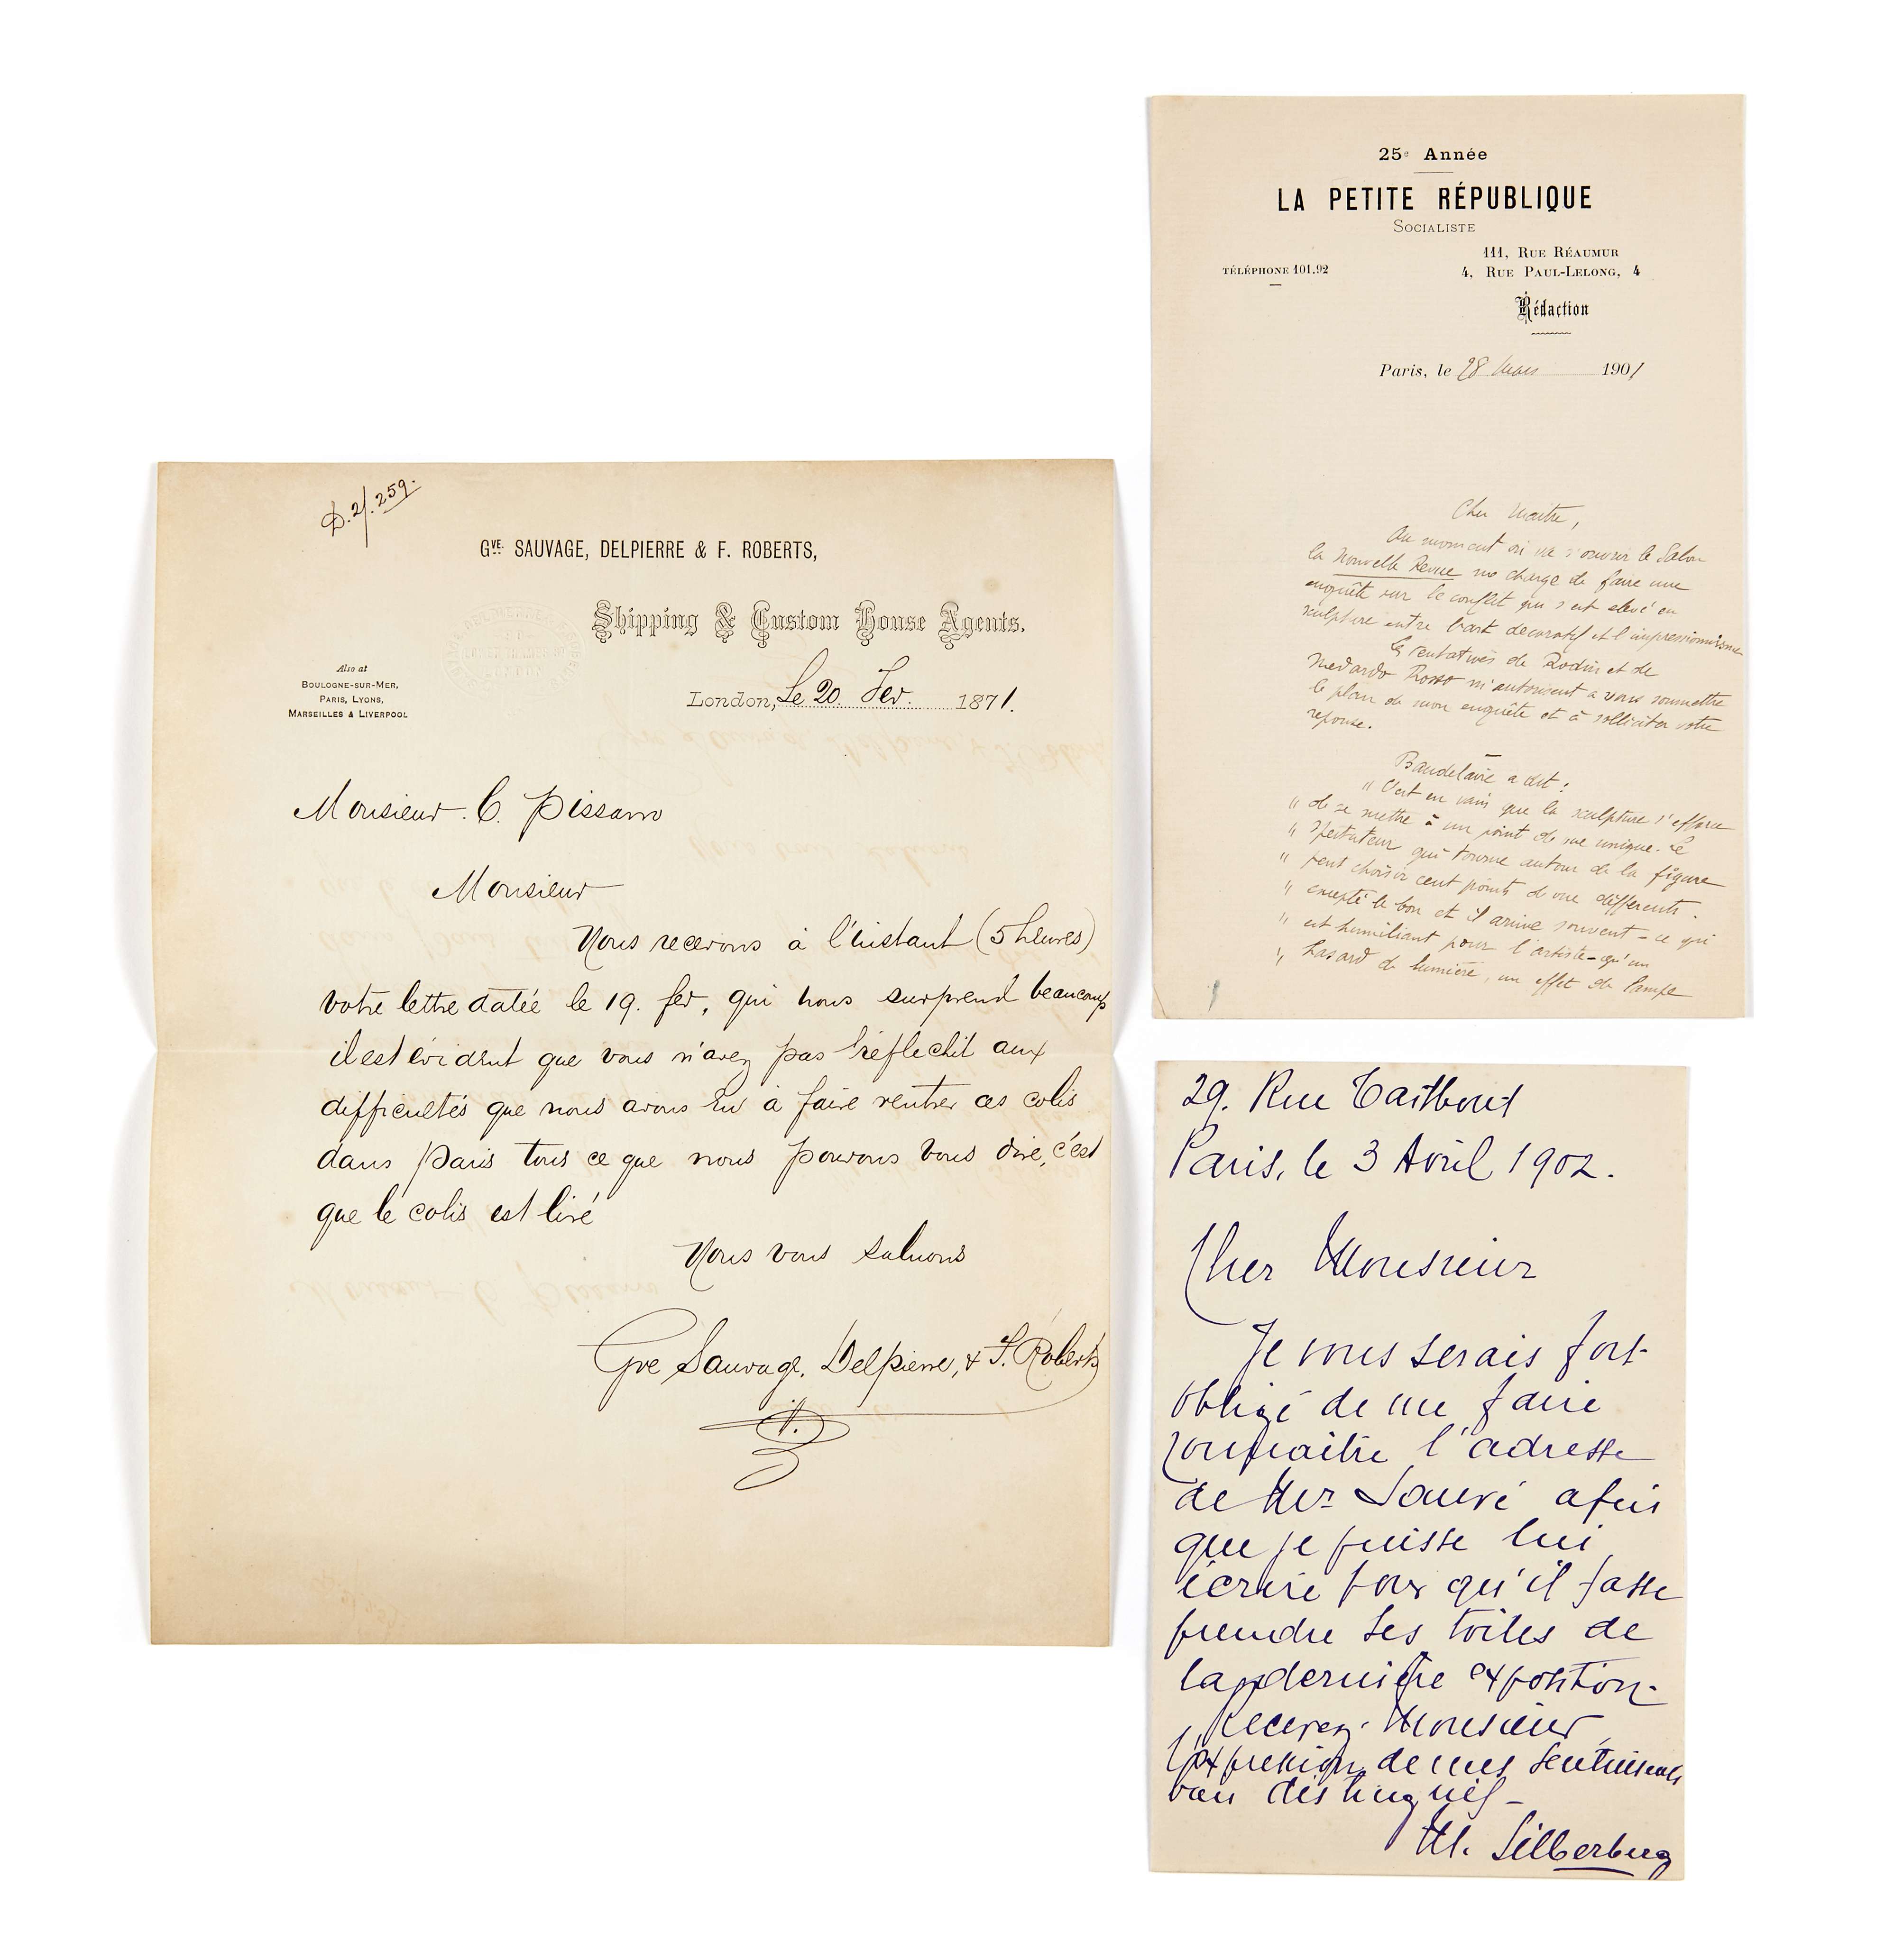 D.2/.259.
GVE. SAUVAGE, DELPIERRE & F. ROBERTS,
Shipping & Custom House Agents.
Also at
BOULOGNE-SUR-MER,
PARIS, LYONS,
MARSEILLES & LIVERPOOL
London, Le 20. Fev. 1871.
Monsieur. C. Pissarro
Monsieur
Nous recevons à l'instant (5 heures)
votre lettre datée le 19. fev, qui nous surprend beaucoup
il est évident que vous n'avez pas réflechit aux
difficultés que nous avons eu à faire rentrer ces colis
dans Paris tous ce que nous pouvons vous dire, c'est
que le colis est livré
Nous vous saluons
Gve Sauvage, Delpierre, & F. Roberts
25e Année
LA PETITE RÉPUBLIQUE
SOCIALISTE
111, RUE RÉAUMUR
TÉLÉPHONE 101.92
4, RUE PAUL-LELONG, 4
Rédaction
Paris, le 28 Mars 1901
Cher Maitre,
Au moment où va s'ouvrir le Salon
la Nouvelle Revue me charge de faire une
enquête sur le conflit qui s'est elevé en
sculpture entre l'art decoratif et l'impressionnisme
Les tentatives de Rodin et de
Medardo Rosso m'autorisent a vous soumettre
le plan de mon enquête et à solliciter votre
reponse.
Baudelaire a dit :
" C'est en vain que la sculpture s'efforce
" de se mettre à un point de vue unique. Le
" spectateur qui tourne autour de la figure
" peut choisir cent points de vue différents.
" excepté le bon et il arrive souvent - ce qui
" est humiliant pour l'artiste - qu'un
" hasard de lumière, un effet de lampe
29. Rue Taitbout
Paris, le 3 Avril 1902.
Cher Monsieur
Je vous serais fort
obligé de me faire
connaitre l'adresse
de Mr afin
que je puisse lui
écrire pour qu'il fasse
prendre ses toiles de
la dernière exposition.
Recevez. Monsieur
l'expression de mes sentiments
bien distingués -
M. Silberberg